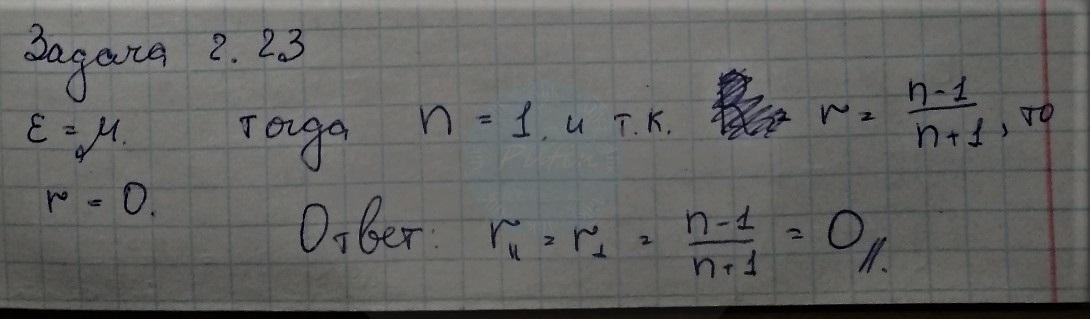 Задача 2.23
ε = μ. тогда n = 1. и т.к. r = n-1/n+1, то
r = 0.
Ответ: r₁₁ = r⊥ = n-1/n+1 = 0//.